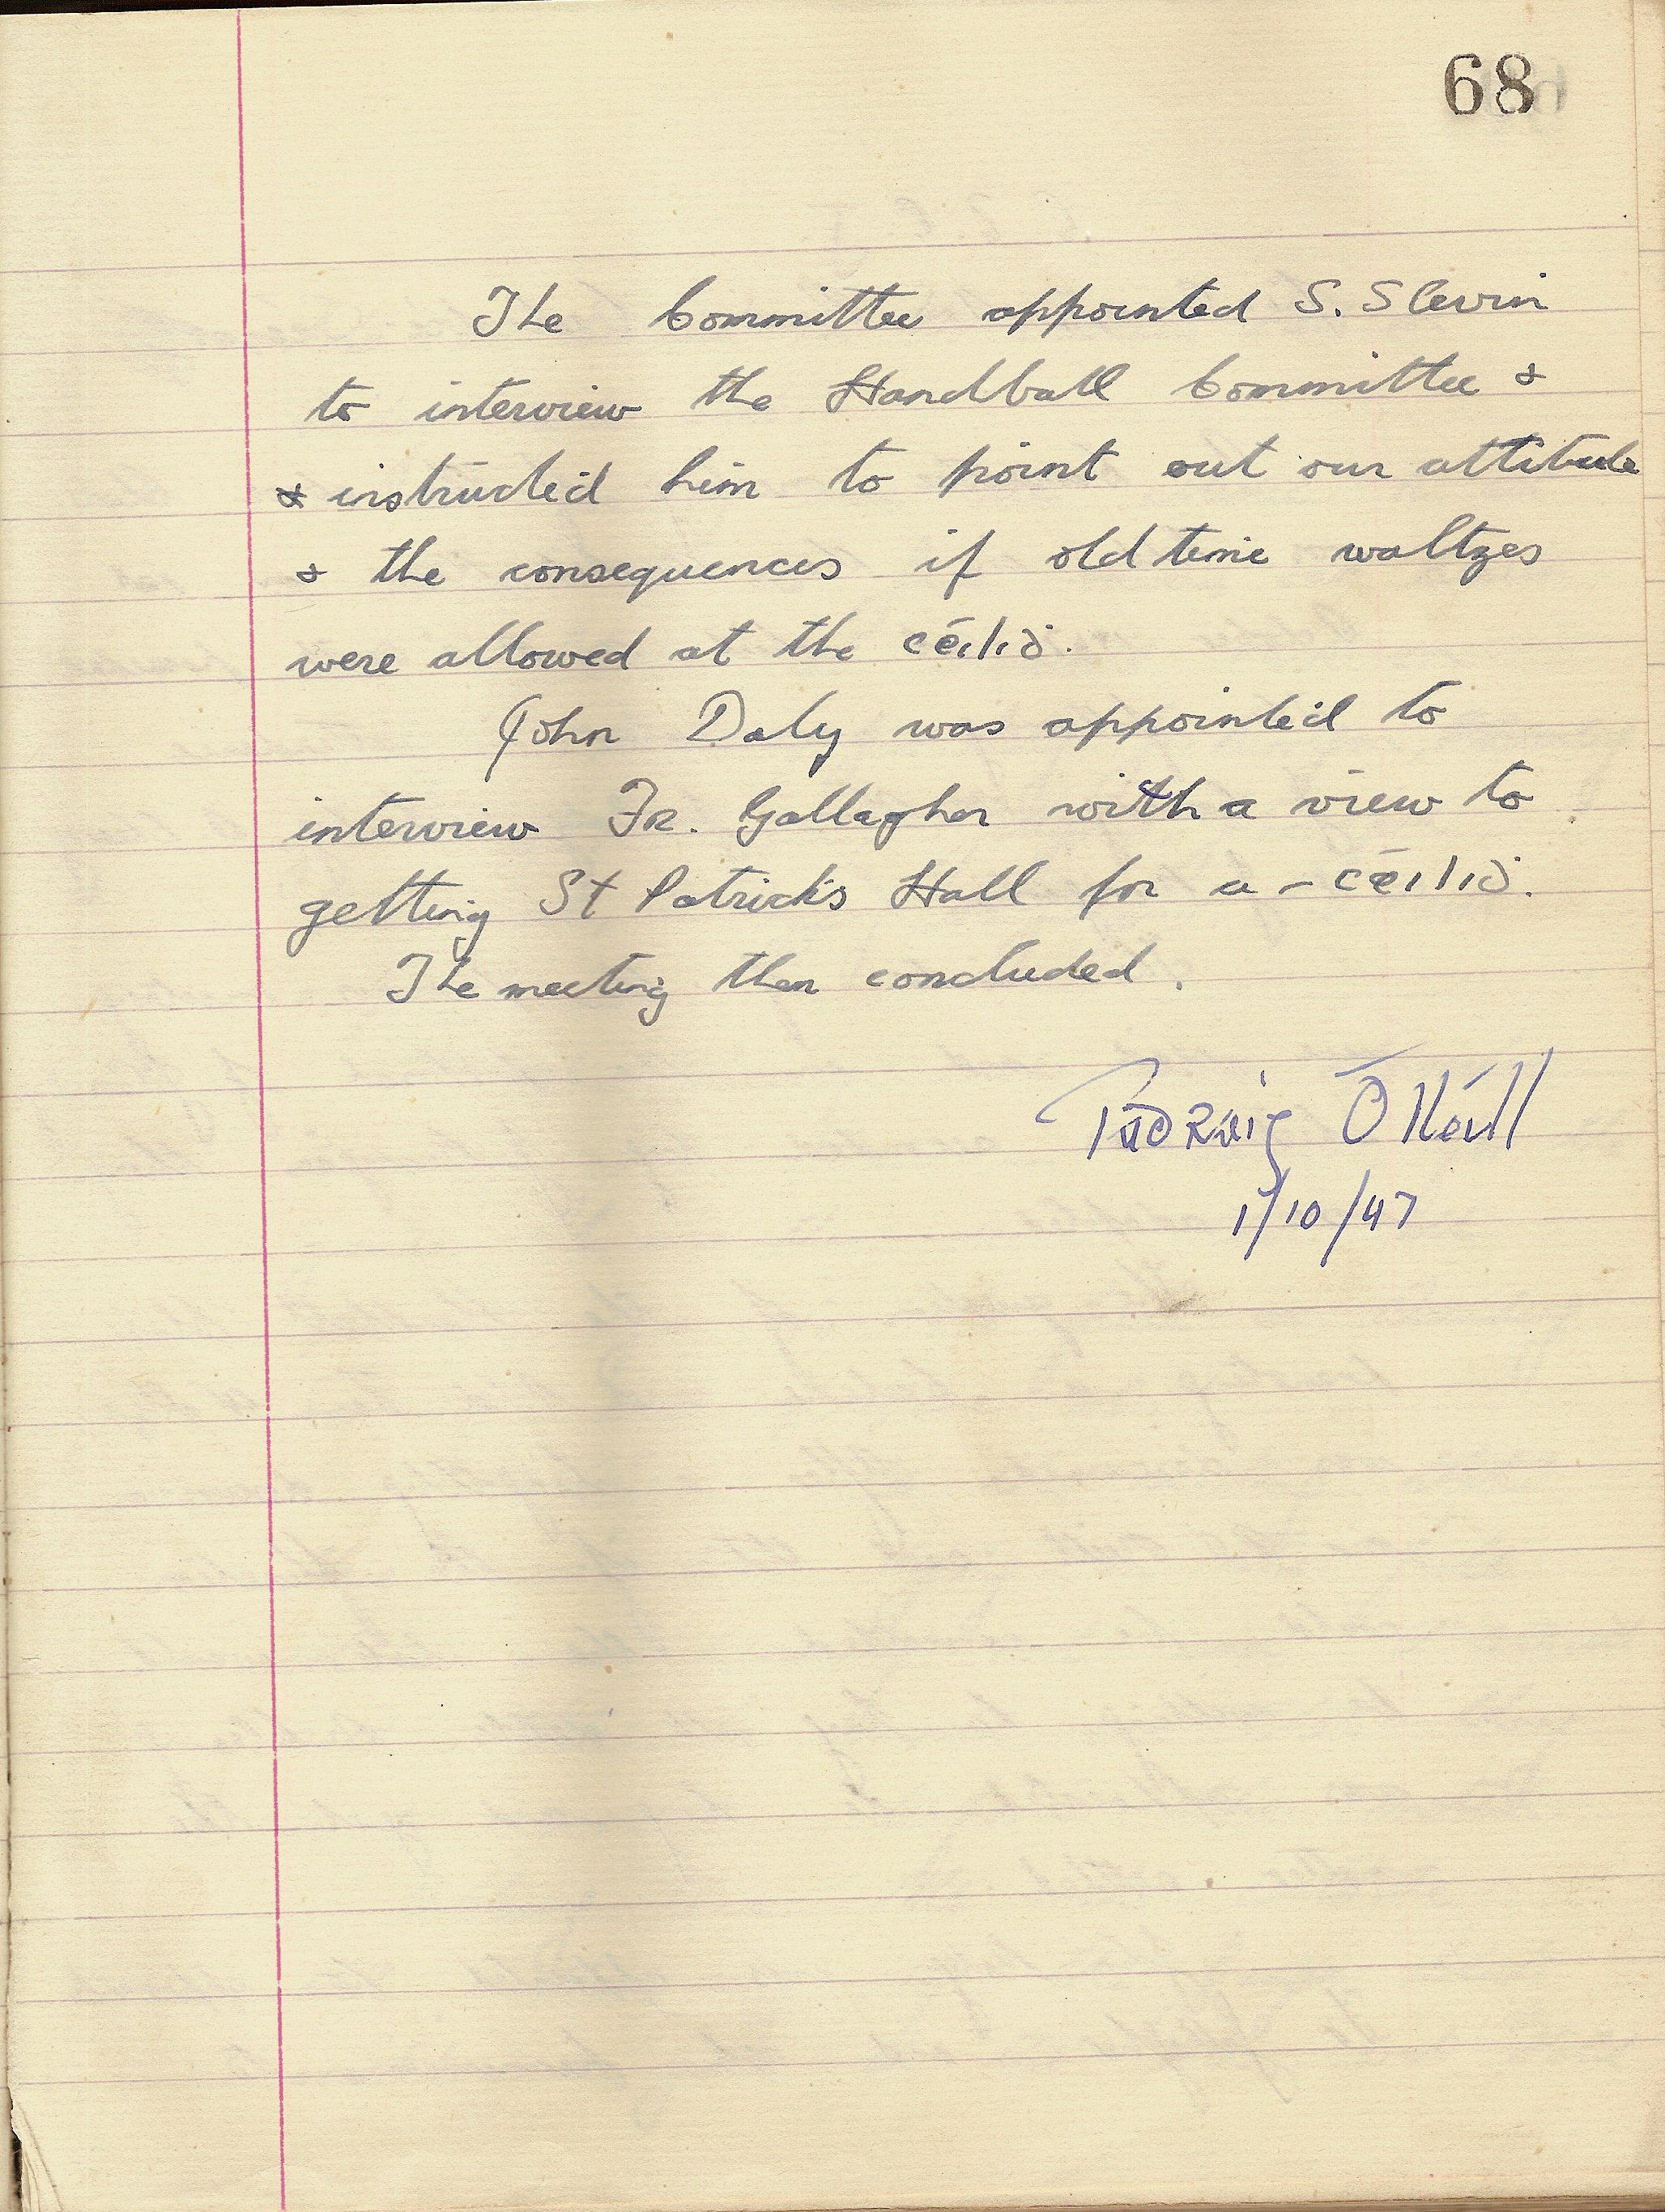 68
The Committee appointed S. Slevin
to interview the Handball Committee &
& instructed him to point out our attitude
& the consequences if old time waltzes
were allowed at the céiliḋ.
John Daly was appointed to
interview Fr. Gallagher with a view to
getting St Patrick's Hall for a - céiliḋ.
The meeting then concluded.
Pádraig Ó Néill
1/10/47